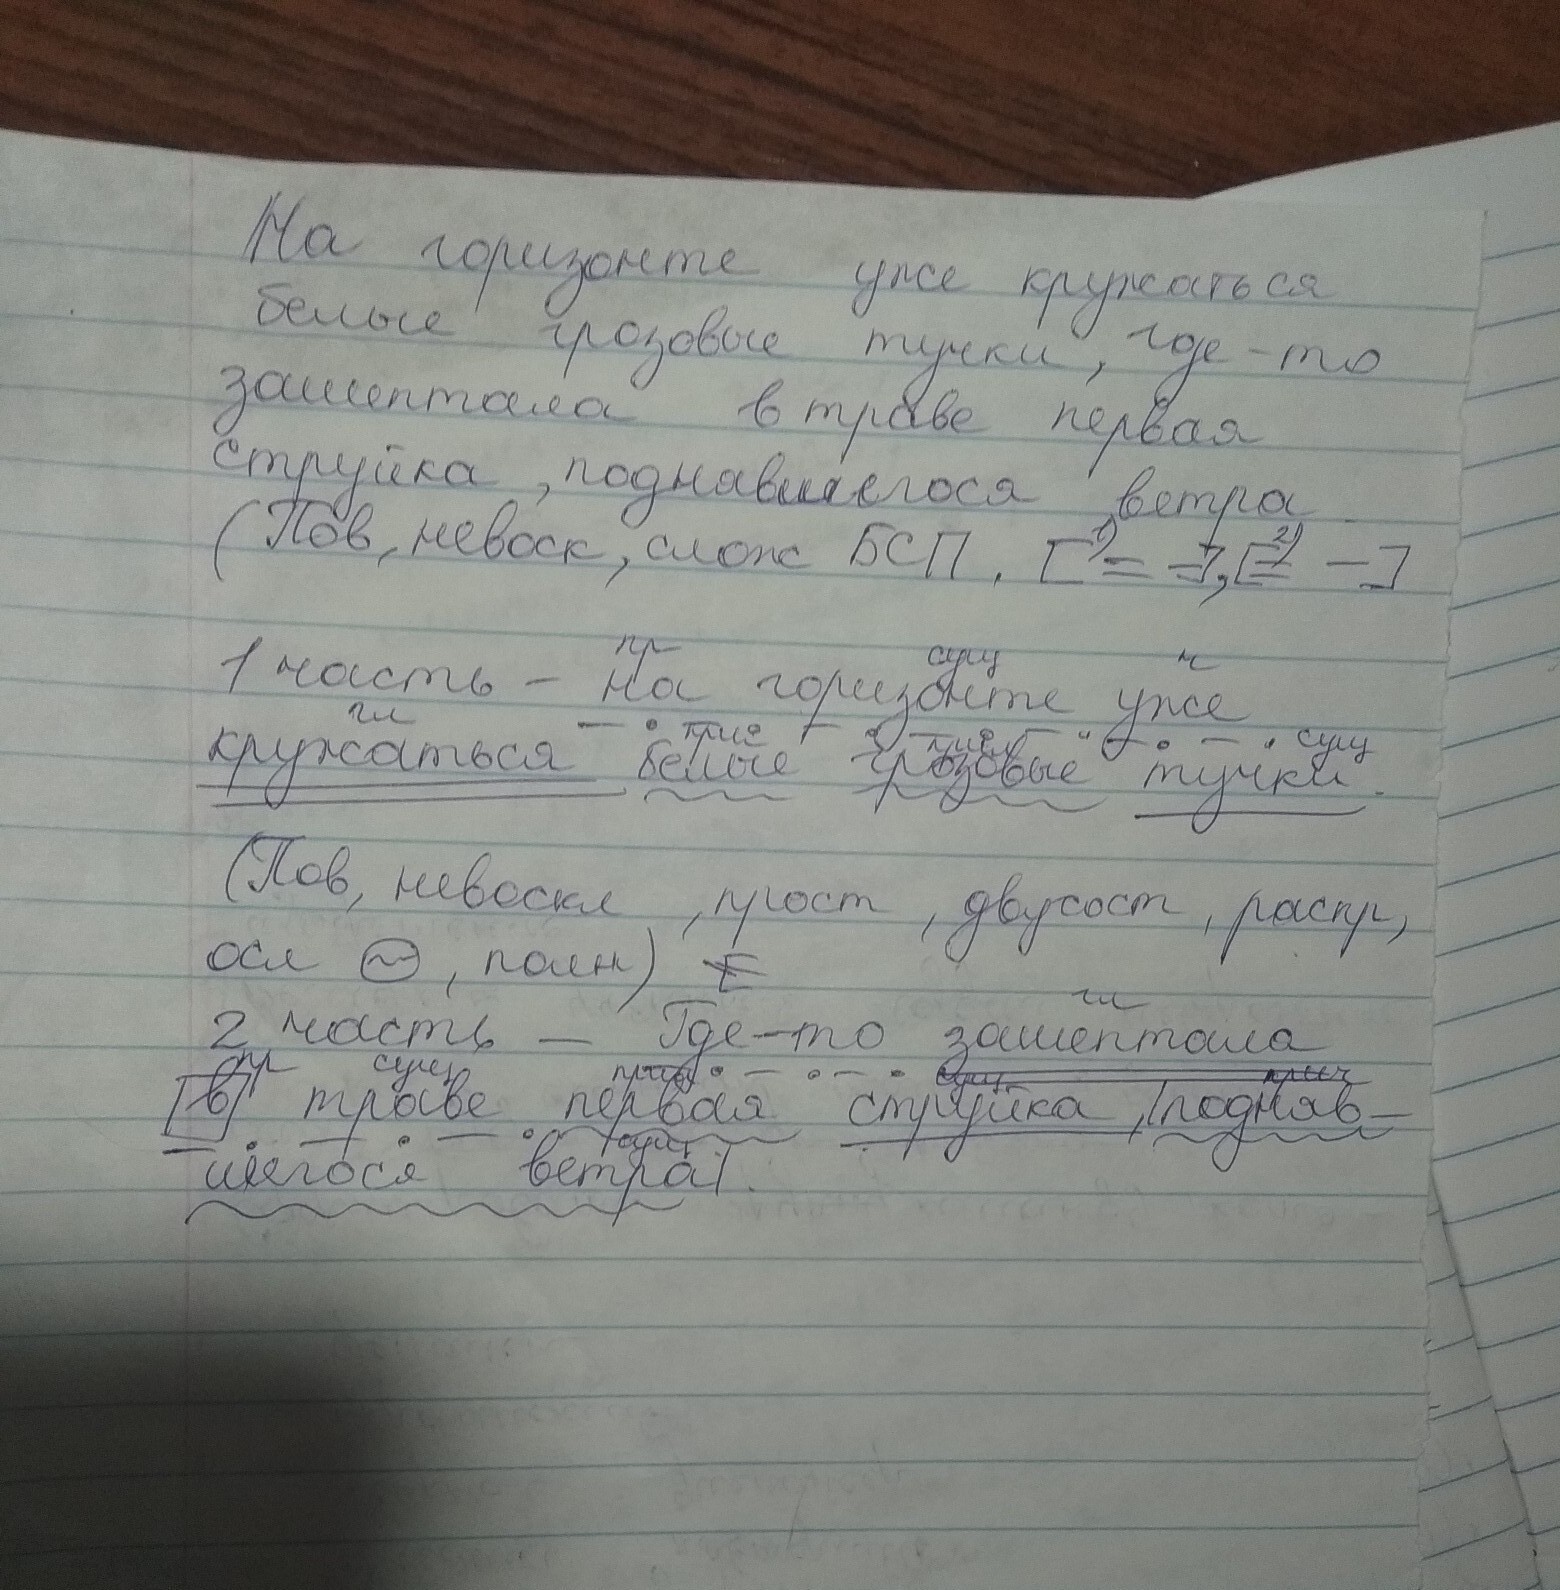 На горизонте уже кружаться
белые грозовые тучки, где-то
зашептала в траве первая
струйка, поднявшегося ветра
(Пов, невоск, слож БСП. [1) = -], [2) = -]
пр сущ н
1 часть - на горизонте уже
гл прил прил сущ
кружаться белые грозовые тучки.
(Пов, невоскл, прост, двусост, распр,
осл, полн)
гл
2 часть - Где-то зашептала
пр сущ сущ прич
в траве первая струйка, |подняв-
сущ
шегося ветра|.